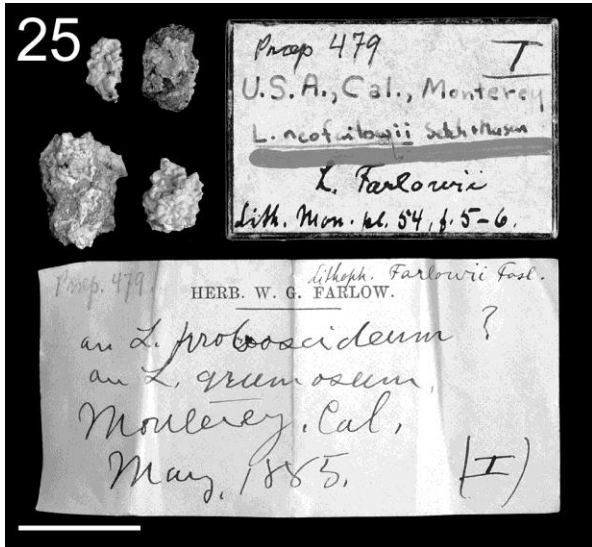 25
Præp 479 I
U.S.A., Cal., Monterey
L. neofarlowii Setch & Mason
L. Farlowii
Lith. Mon. pl. 54, f. 5-6.
Præp. 479. Lithoph. Farlowii Fosl.
HERB. W. G. FARLOW.
an L. proboscideum ?
an L. grumosum.
Monterey, Cal.
May, 1885. (I)